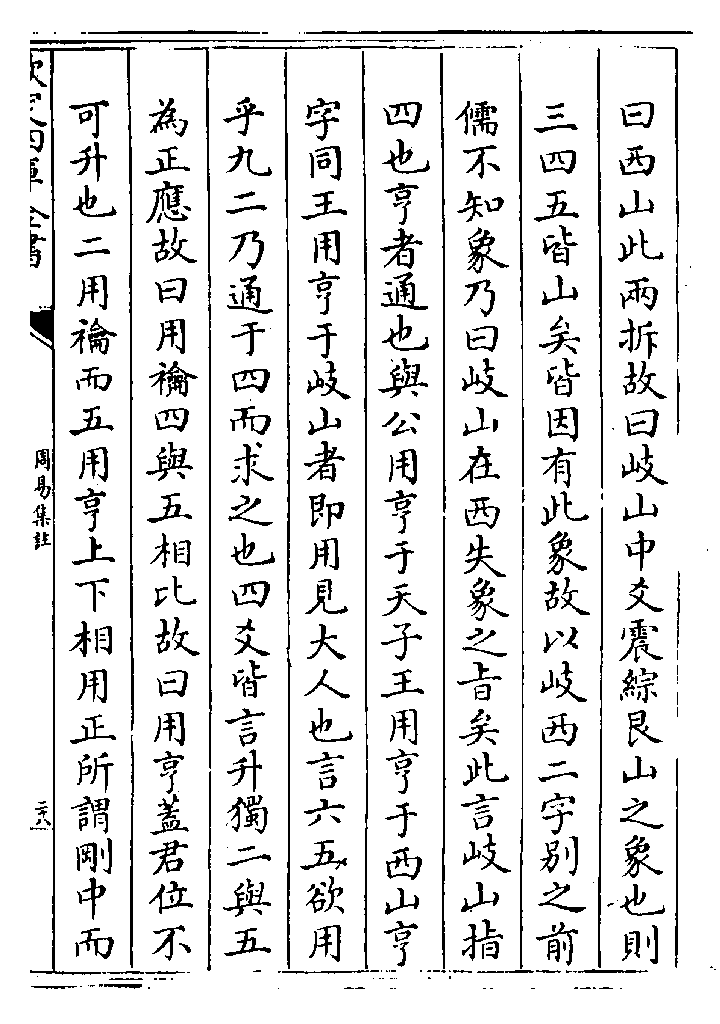 曰西山此兩拆故曰岐山中爻震綜艮山之象也則
三四五皆山矣皆因有此象故以岐西二字别之前
儒不知象乃曰岐山在西失象之旨矣此言岐山指
四也亨者通也與公用亨于天子王用亨于西山亨
字同王用亨于岐山者即用見大人也言六五欲用
乎九二乃通于四而求之也四爻皆言升獨二與五
為正應故曰用禴四與五相比故曰用亨蓋君位不
可升也二用禴而五用亨上下相用正所謂剛中而
欽定四庫全書
周易集註
二八